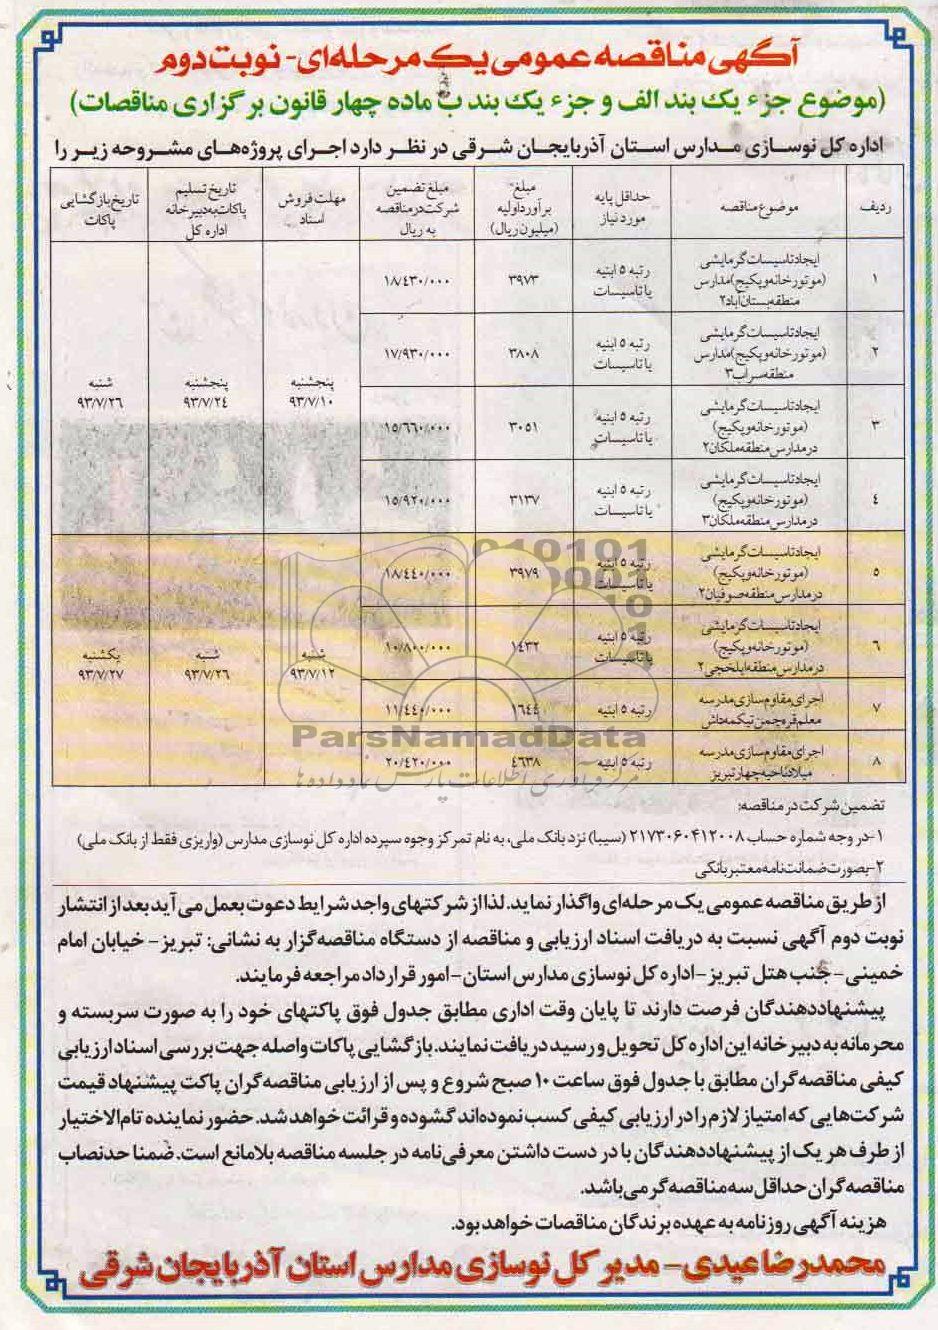 آگهی مناقصه عمومی یک مرحله‌ای- نوبت دوم
(موضوع جزء یک بند الف و جزء یک بند ب ماده چهار قانون برگزاری مناقصات)
اداره کل نوسازی مدارس استان آذربایجان شرقی در نظر دارد اجرای پروژه‌های مشروحه زیر را
ردیف | موضوع مناقصه | حداقل پایه مورد نیاز | مبلغ برآورد اولیه (میلیون ریال) | مبلغ تضمین شرکت در مناقصه به ریال | مهلت فروش اسناد | تاریخ تسلیم پاکات به دبیرخانه اداره کل | تاریخ بازگشایی پاکات
۱ | ایجاد تاسیسات گرمایشی (موتورخانه و پکیج) مدارس منطقه بستان آباد۲ | رتبه ۵ ابنیه یا تاسیسات | ۳۹۷۳ | ۱۸/۴۳۰/۰۰۰ | پنجشنبه ۹۳/۷/۱۰ | پنجشنبه ۹۳/۷/۲۴ | شنبه ۹۳/۷/۲۶
۲ | ایجاد تاسیسات گرمایشی (موتورخانه و پکیج) مدارس منطقه سراب۳ | رتبه ۵ ابنیه یا تاسیسات | ۳۸۰۸ | ۱۷/۹۳۰/۰۰۰
۳ | ایجاد تاسیسات گرمایشی (موتورخانه و پکیج) در مدارس منطقه ملکان۲ | رتبه ۵ ابنیه یا تاسیسات | ۳۰۵۱ | ۱۵/۶۶۰/۰۰۰
۴ | ایجاد تاسیسات گرمایشی (موتورخانه و پکیج) در مدارس منطقه ملکان۳ | رتبه ۵ ابنیه یا تاسیسات | ۳۱۳۷ | ۱۵/۹۲۰/۰۰۰
۵ | ایجاد تاسیسات گرمایشی (موتورخانه و پکیج) در مدارس منطقه صوفیان۲ | رتبه ۵ ابنیه یا تاسیسات | ۳۹۷۹ | ۱۸/۴۴۰/۰۰۰ | شنبه ۹۳/۷/۱۲ | شنبه ۹۳/۷/۲۶ | یکشنبه ۹۳/۷/۲۷
۶ | ایجاد تاسیسات گرمایشی (موتورخانه و پکیج) در مدارس منطقه ایلخچی۲ | رتبه ۵ ابنیه یا تاسیسات | ۱۴۳۲ | ۱۰/۸۰۰/۰۰۰
۷ | اجرای مقاوم سازی مدرسه معلم قره چمن تیکمه داش | رتبه ۵ ابنیه | ۱۶۴۴ | ۱۱/۴۴۰/۰۰۰
۸ | اجرای مقاوم سازی مدرسه میلاد ناحیه چهار تبریز | رتبه ۵ ابنیه | ۴۶۳۸ | ۲۰/۴۲۰/۰۰۰
ParsNamadData
مرکز فرآوری اطلاعات پارس نماد داده‌ها
تضمین شرکت در مناقصه:
۱-در وجه شماره حساب ۲۱۷۳۰۶۰۴۱۲۰۰۸ (سیبا) نزد بانک ملی، به نام تمرکز وجوه سپرده اداره کل نوسازی مدارس (واریزی فقط از بانک ملی)
۲-بصورت ضمانت نامه معتبر بانکی
از طریق مناقصه عمومی یک مرحله‌ای واگذار نماید. لذا از شرکتهای واجد شرایط دعوت بعمل می آید بعد از انتشار
نوبت دوم آگهی نسبت به دریافت اسناد ارزیابی و مناقصه از دستگاه مناقصه‌گزار به نشانی: تبریز- خیابان امام
خمینی- جنب هتل تبریز-اداره کل نوسازی مدارس استان-امور قرارداد مراجعه فرمایند.
پیشنهاددهندگان فرصت دارند تا پایان وقت اداری مطابق جدول فوق پاکتهای خود را به صورت سربسته و
محرمانه به دبیرخانه این اداره کل تحویل و رسید دریافت نمایند. بازگشایی پاکات واصله جهت بررسی اسناد ارزیابی
کیفی مناقصه گران مطابق با جدول فوق ساعت ۱۰ صبح شروع و پس از ارزیابی مناقصه‌گران پاکت پیشنهاد قیمت
شرکت‌هایی که امتیاز لازم را در ارزیابی کیفی کسب نموده‌اند گشوده و قرائت خواهد شد. حضور نماینده تام‌الاختیار
از طرف هر یک از پیشنهاددهندگان با در دست داشتن معرفی‌نامه در جلسه مناقصه بلامانع است. ضمنا حدنصاب
مناقصه‌گران حداقل سه مناقصه‌گر می‌باشد.
هزینه آگهی روزنامه به عهده برندگان مناقصات خواهد بود.
محمدرضا عیدی- مدیر کل نوسازی مدارس استان آذربایجان شرقی